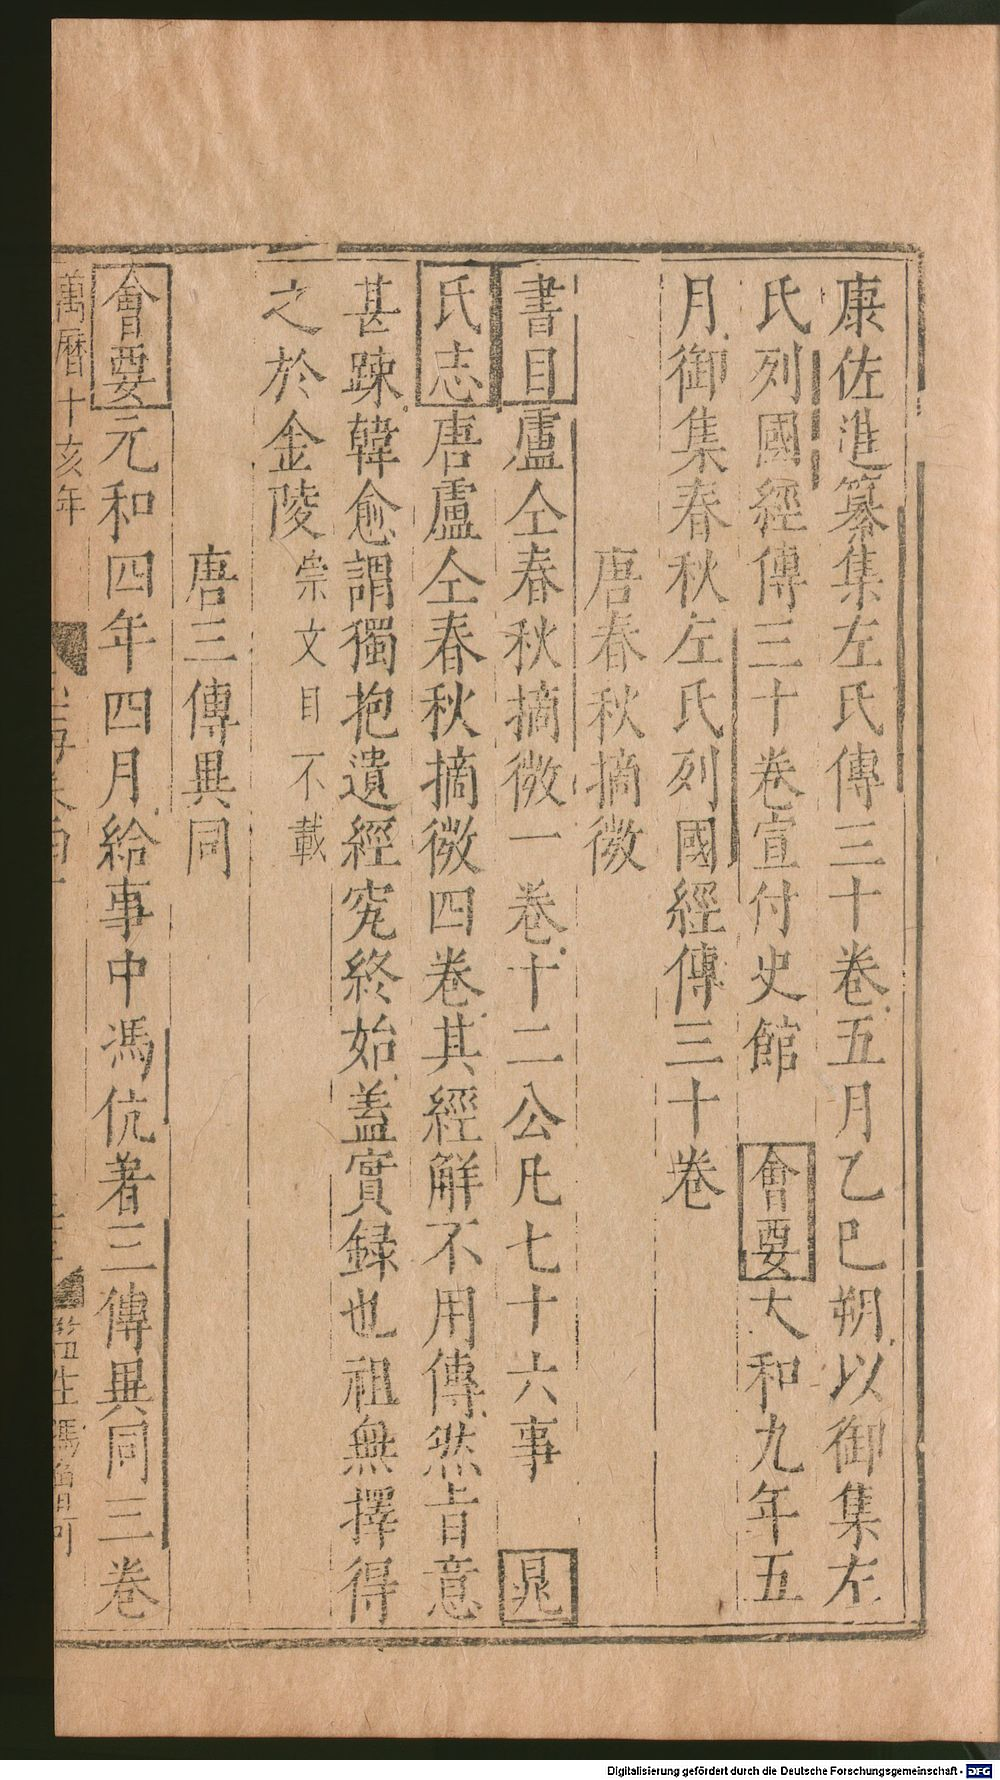 康佐進纂集左氏傳三十卷五月乙巳朔以御集左
氏列國經傳三十卷宣付史館 會要大和九年五
月御集春秋左氏列國經傳三十卷
唐春秋摘微
書目盧仝春秋摘微一卷十二公凡七十六事 晁
氏志唐盧仝春秋摘微四卷其經解不用傳然旨意
甚踈韓愈謂獨抱遺經究終始蓋實録也祖無擇得
之於金陵崇文目不載
唐三傳異同
會要元和四年四月給事中馮伉著三傳異同三卷
萬曆十亥年
Digitalisierung gefördert durch die Deutsche Forschungsgemeinschaft - DFG